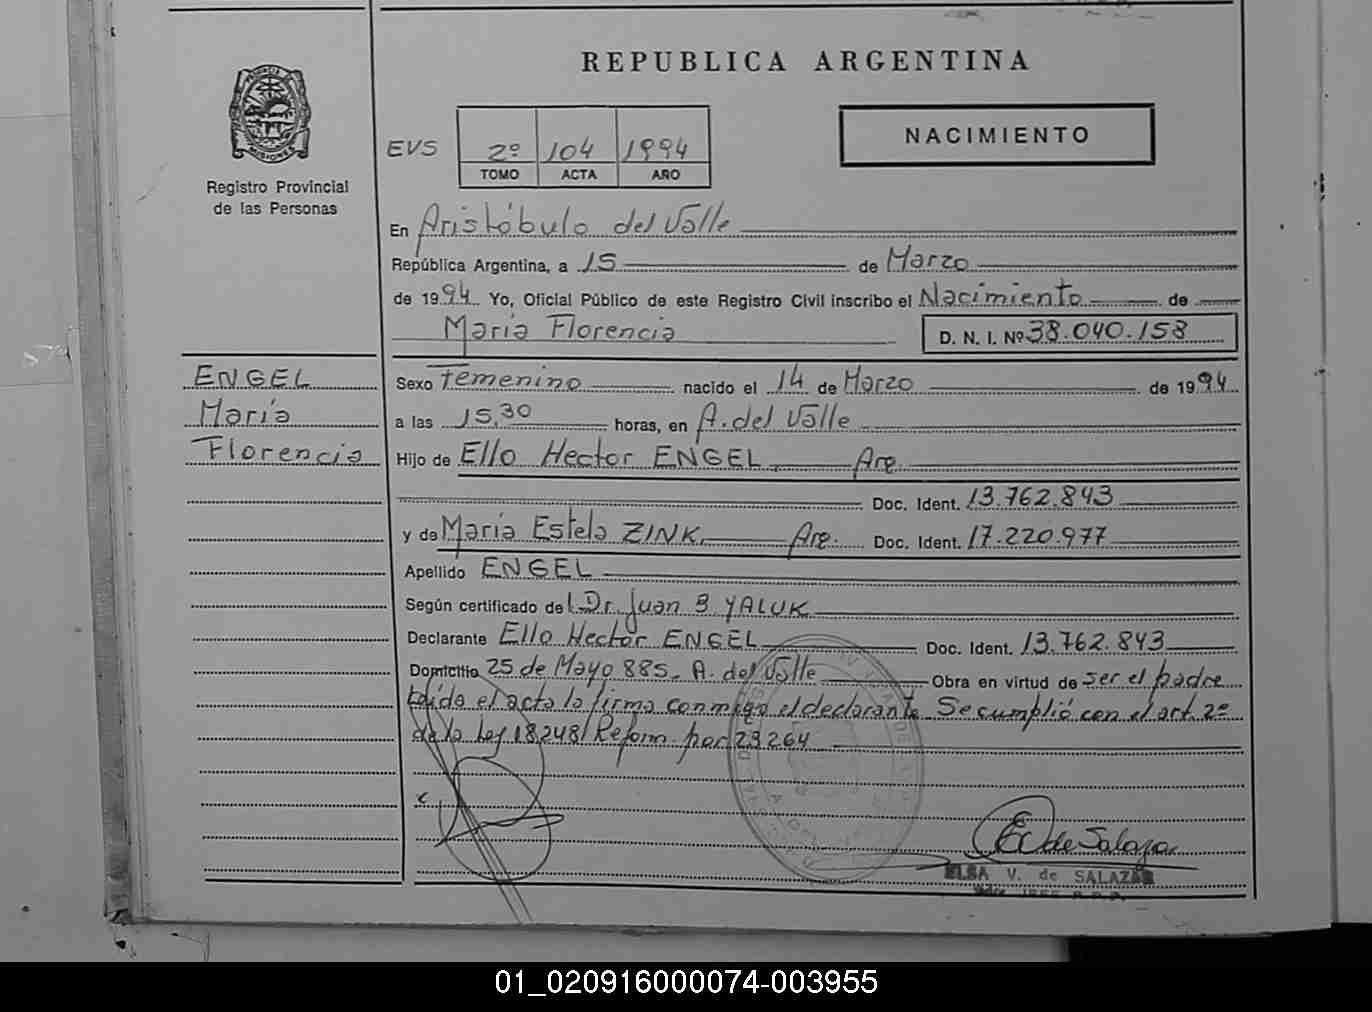 REPUBLICA ARGENTINA
PROVINCIA DE
MISIONES
Registro Provincial
de las Personas
EVS
2º 104 1994
TOMO ACTA AÑO
NACIMIENTO
En Aristóbulo del Valle
República Argentina, a 15 de Marzo
de 1994 Yo, Oficial Público de este Registro Civil inscribo el Nacimiento de
María Florencia D. N. I. Nº 38.040.158
ENGEL
María
Florencia
Sexo Femenino nacido el 14 de Marzo de 1994
a las 15,30 horas, en A. del Valle
Hijo de Ello Hector ENGEL, Arg.
Doc. Ident. 13.762.843
y de María Estela ZINK, Arg. Doc. Ident. 17.220.977
Apellido ENGEL
Según certificado del Dr. Juan B YALUK
Declarante Ello Hector ENGEL Doc. Ident. 13.762.843
Domicilio 25 de Mayo 885. A. del Valle Obra en virtud de ser el padre
Leída el acta la firma conmigo el declarante. Se cumplió con el art. 2º
de la Ley 18248/ Reform. por 23264
E V de Salazar
ELSA V. de SALAZAR
01_020916000074-003955